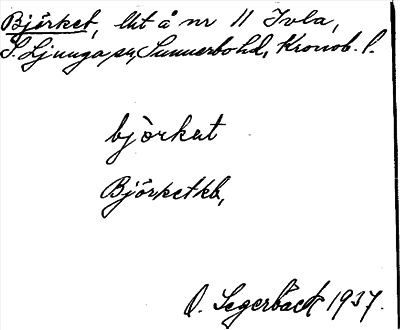 Björket, lht å nr 11 Ivla,
S. Ljunga sn, Sunnerbo hd, Kronob. l.
björkut
Björketkb,
O. Segerbäck 1937.